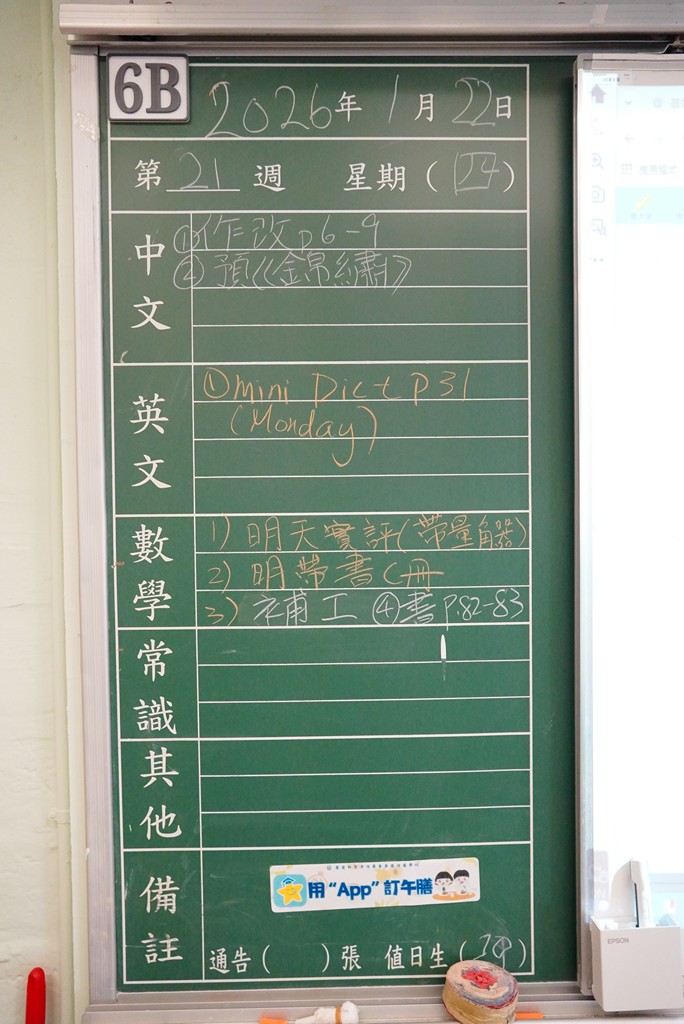 6B
2026年1月22日
第21週 星期(四)
中文
①作改p6-9
②預《錦帛繡》
英文
①mini Dict P31
(Monday)
數學
1) 明天實評(帶量角器)
2) 明帶書C冊
3) 補工 ④書p.82-83
常識
其他
備註
用“App”訂午膳
通告( )張 值日生( )
EPSON